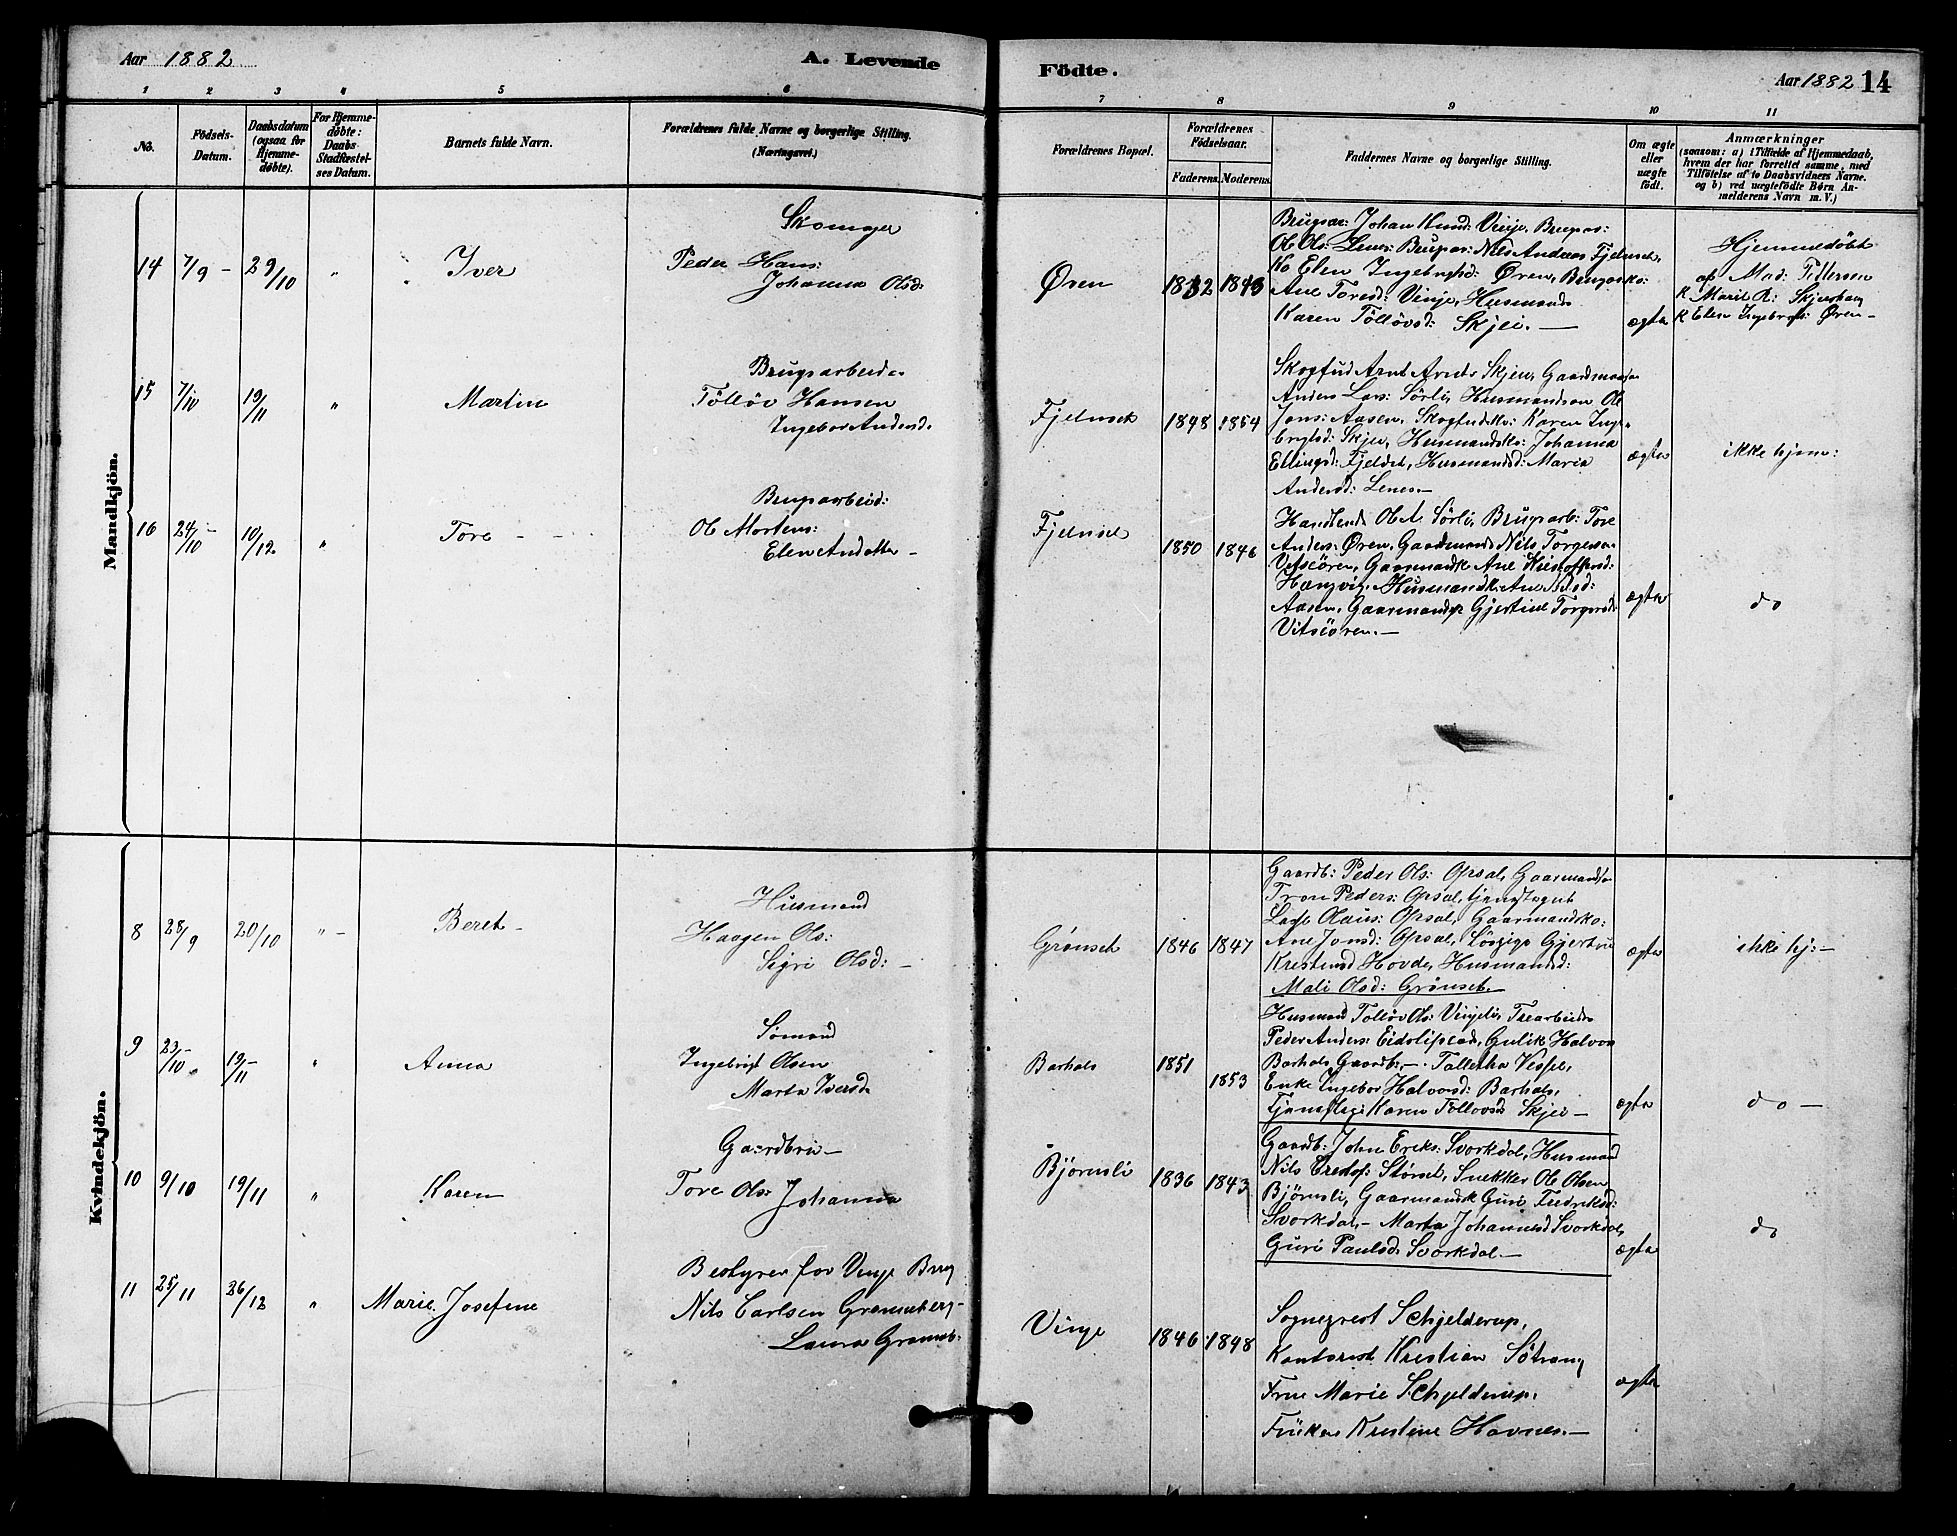 Aar 1882
A. Levende
Födte.
Aar 1882 14
1 2 3 4 5 6 7 8 9 10 11
No.
Födsels-
Datum.
Daabsdatum
(ogsaa for
Hjemme-
døbte).
For Hjemme-
døbte:
Daabs-
Stadfæstel-
ses Datum.
Barnets fulde Navn.
Forældrenes fulde Navne og borgerlige Stilling.
(Næringsvei.)
Forældrenes Bopæl.
Forældrenes
Födselsaar.
Faderens. Moderens.
Faddernes Navne og borgerlige Stilling.
Om ægte
eller
uægte
født.
Anmærkninger
(saasom: a) i Tilfælde af Hjemmedaab,
hvem der har forrettet samme, med
Tilføielse af to Daabsvidners Navne.
og b) ved uægtefödte Börn An-
melderens Navn m. V.)
Mandkjön.
14 7/9 - 29/10 " Iver
Peder Hans:
Johanna Olsd:
Øren
1843
Brugsar: Johan Knud: Vinje, Brugsar:
Ol Ols: Lenes Brugsar: Nils Andreas Fjelnset,
Ko Elen Ingebrgtsd: Øren, Brugsarko:
Ane Toresd: Vinje, Husmands
Karen Tölløvsd: Skjei. —
ægte
Hjemmedøbt
af Mad: Pettersen
K Marit R: Skjershaug
K Elen Ingebrgt: Øren -
15 7/10 19/11 " Martin
Brugsarbeider
Tölløv Hansen
Ingebor Andersd.
Fjelnset
1848 1854
Skogfud Arnt Arnts Skjei, Gaardmands
Anders Lars: Sörli, Husmandson Ole
Jons: Aasen, Skogfudsko: Karen Inge-
brgtsd: Skjei, Husmandsko: Johanna
Ellingsd: Fjeldst, Husmandsd: Maria
Andersd: Lenes.-
ægte
ikke hjem:
16 24/10 - 10/12 " Tore - -
Brugsarbeid:
Ole Mortens:
Elen Andatter -
Fjelnset
1850 1846
Handlende Ol A. Sörli, Brugsarb: Tore
Anders: Øren, Gaardmands Nils Torgersen
Vitsøören, Gaarmandk Ane Kristoffersd:
Hængvig, Husmandk: Ane Nilsd:
Aasen, Gaarmandsp Gjertine Torgersd:
Vitsöören.-
ægte
do
Kvindekjön.
8 28/9 20/10 " - Beret -
Husmand
Haagen Ols:
Sigri Olsd: -
Grønset
1846 1847
Gaardb: Peder Ols: Opsal, Gaarmands
Tron Peders: Opsal,
Lars Olaus: Opsal, Gaarmandsko:
Ane Jonsd: Opsal, Gjertru
Krestensd Hovde, Husmandsd:
Mali Olsd: Grønset.-
ægte
ikke hj: -
9 23/10 - 19/11 - " Anna
Sømand
Ingebrigt Olsen
Marta Iversd
Barhals
1851
1853
Husmand Tölløv Ols: Vinjeli, Træarbeider
Peder Anders: Eidslipstad, Gulik Halvors
Barhals Gaardb:, -
Enke Ingebor Halvorsd: Barhals,
Karen Tölløvsd Skjei -
ægte
do -
10 9/10 19/11 " Karen
Gaardbru -
Tore Ols: Johanna
Bjørnsli
1836 1843
Gaardb: John Eriks: Svorkdal, Husmand
Nils Størset, Snekker Ol Olsen
Bjørnsli, Gaarmandsk Guri Fredriksd:
Svorkdal, - Marta Johannesd Svorkdal,
Guri Paulsd: Svorkdal. -
ægte
do
11 25/11 26/12 " Marie Josefine
Bestyrer for Vinje Brug
Nils Carlsen Grønneberg -
Laura Grønneb.
Vinje
1846 1848
Sogneprest Schjelderup,
Kantorist Kristian Søtrang
Frue Marie Schjelderup,
Frøken Kristine Havnes. -
ægte